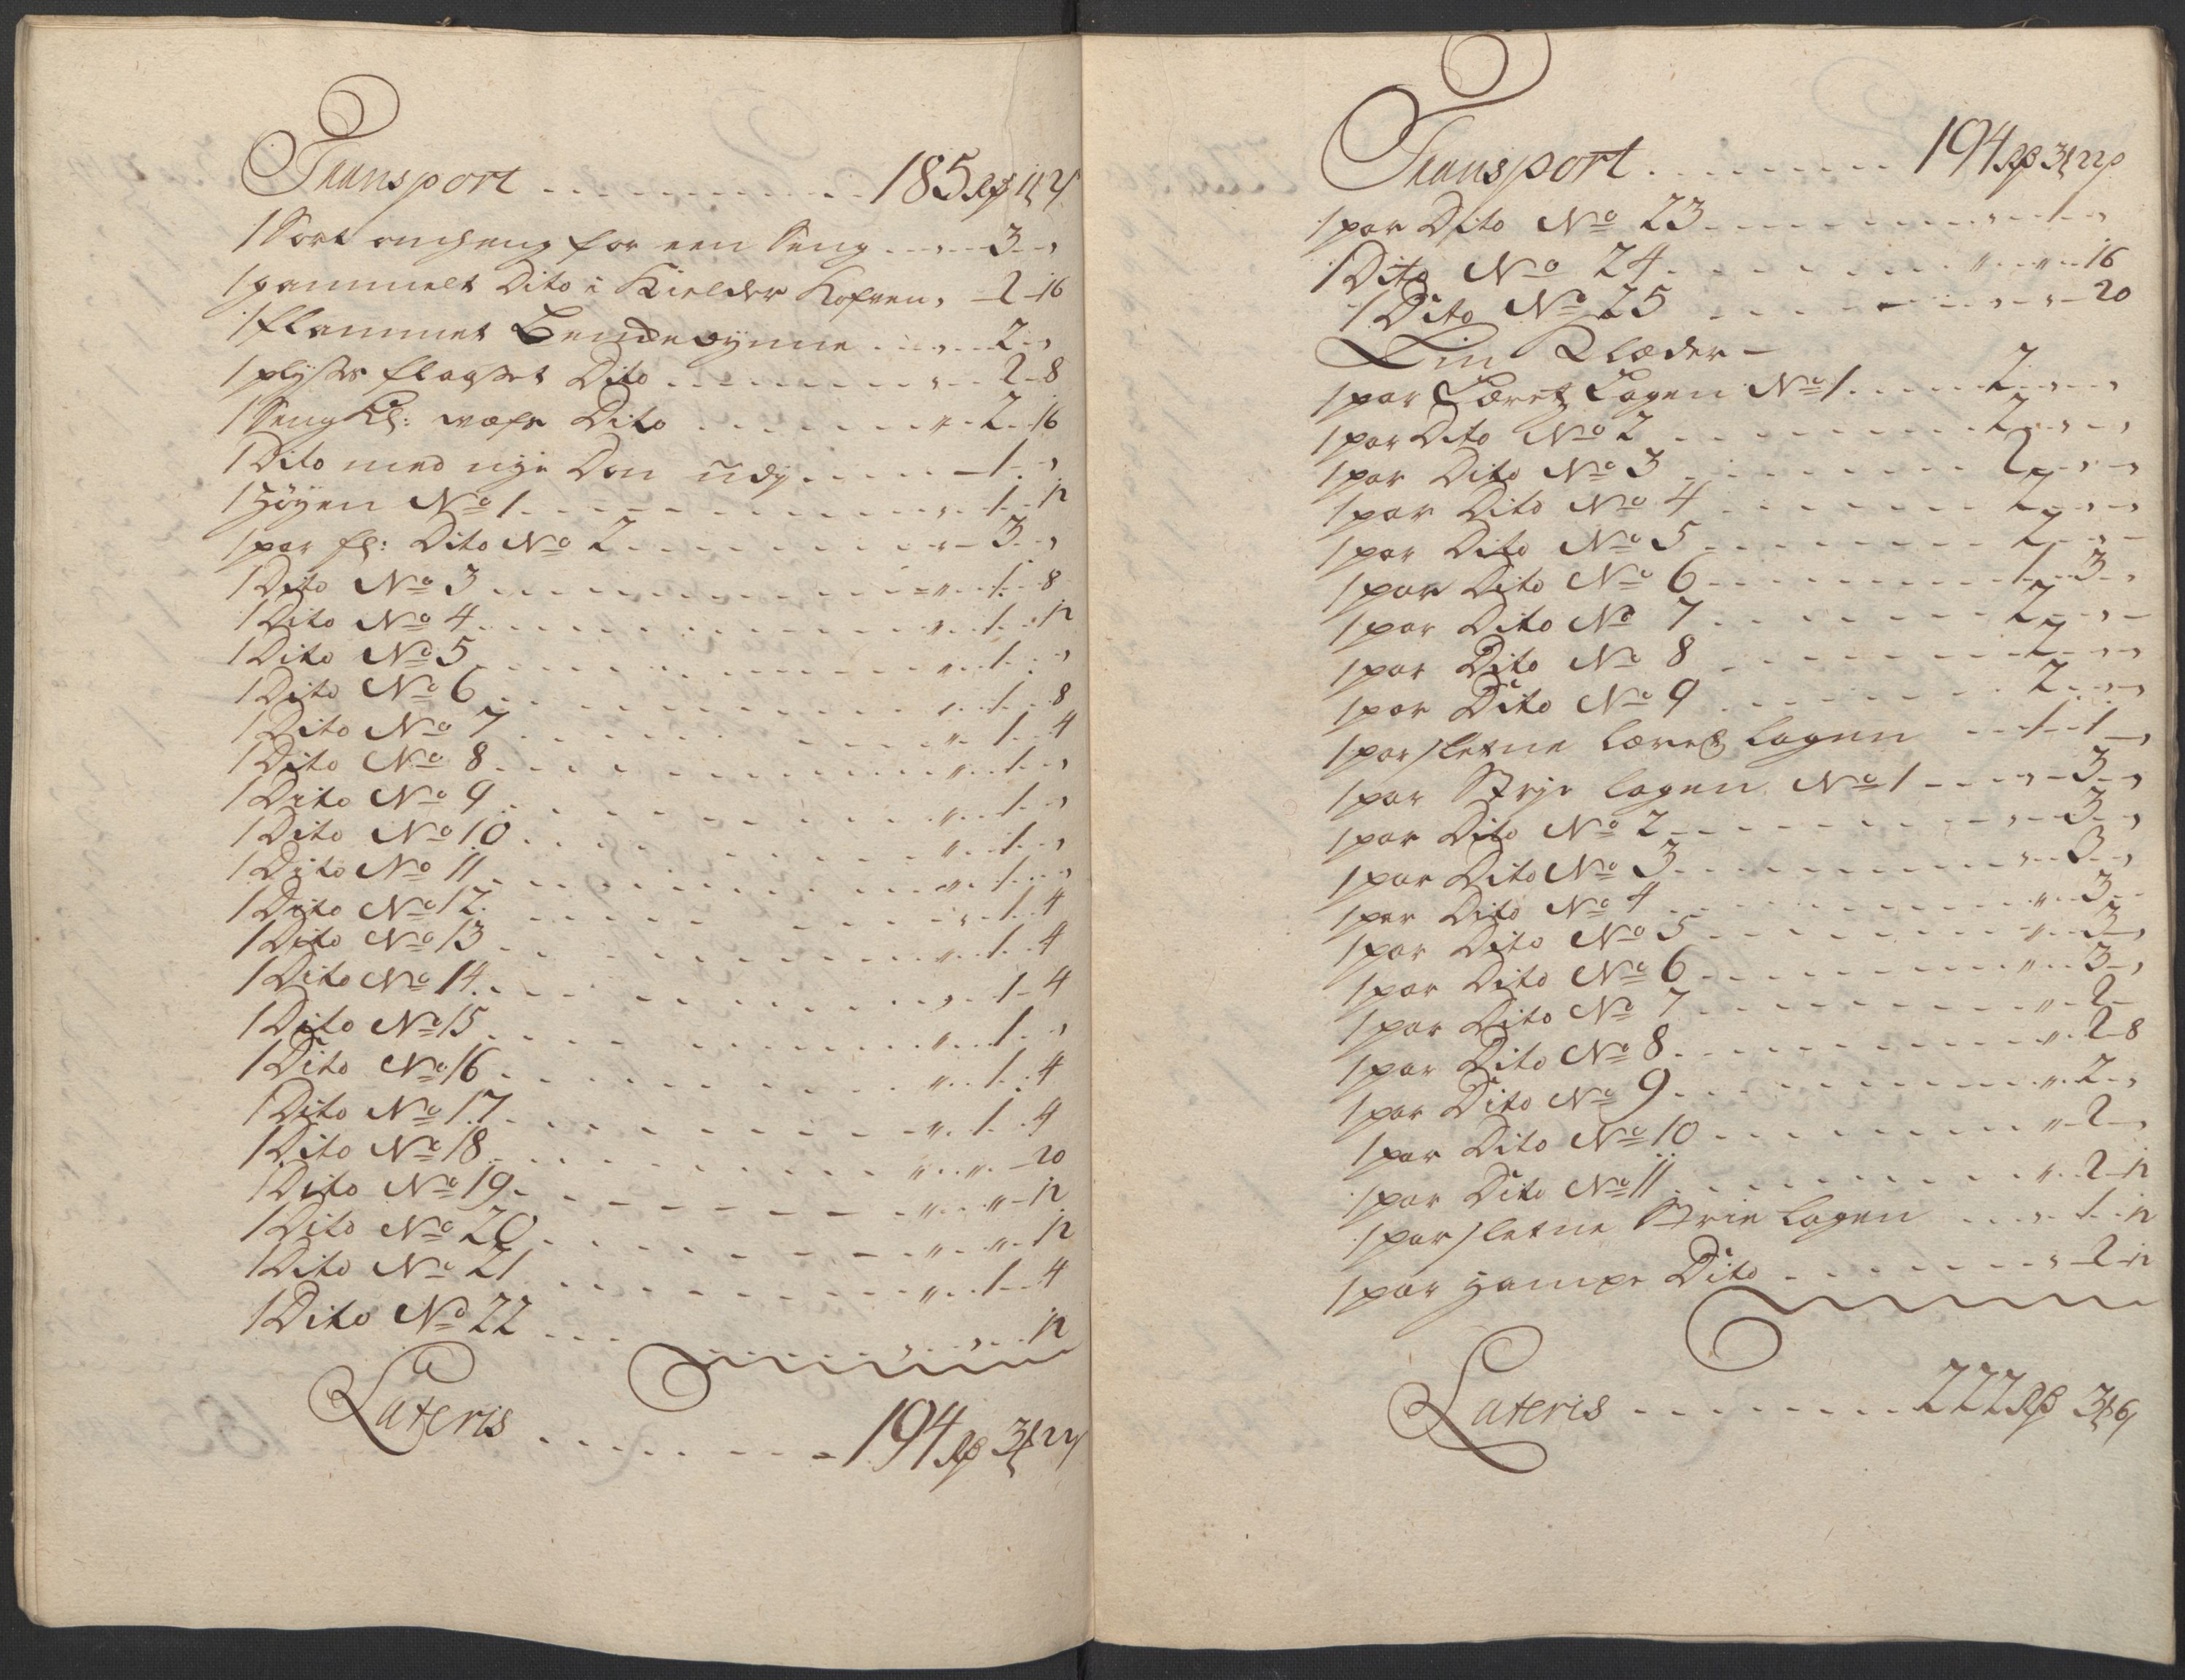 Transport - - - - - - - - - 185 Rd 1 ₰ 2 s
1 Sort omheng for een Seng - - „ - - 3 - „
1 gammelt Dito i Kielder Kofven „ - 2 - 16
1 flammet Bendedynne - - - „ - - 2 - „
1 plysses flagset Dito - - - - - - - - „ - - 2 - 8
1 Seng Kl: wæfs Dito - - - - - - - „ - 2 - 16
1 Dito med nye Don udj - - - - - 1 - „
1 Høyen No 1 - - - - - - - - - - „ - 1 - 12
1 par fl: Dito No 2 - - - - - - - - „ - 3 - „
1 Dito No 3 - - - - - - - - - „ - 1 - 8
1 Dito No 4 - - - - - - - - - „ - 1 - 12
1 Dito No 5 - - - - - - - - - „ - 1 - „
1 Dito No 6 - - - - - - - - - „ - 1 - 8
1 Dito No 7 - - - - - - - - - „ - 1 - 4
1 Dito No 8 - - - - - - - - - „ - 1 - „
1 Dito No 9 - - - - - - - - - „ - 1 - „
1 Dito No 10 - - - - - - - - - „ - 1 - „
1 Dito No 11 - - - - - - - - - „ - 1 - „
1 Dito No 12 - - - - - - - - - „ - 1 - 4
1 Dito No 13 - - - - - - - - - „ - 1 - 4
1 Dito No 14 - - - - - - - - - „ - 1 - 4
1 Dito No 15 - - - - - - - - - „ - 1 - „
1 Dito No 16 - - - - - - - - - „ - 1 - 4
1 Dito No 17 - - - - - - - - - „ - 1 - 4
1 Dito No 18 - - - - - - - - - „ - „ - 20
1 Dito No 19 - - - - - - - - - „ - „ - 12
1 Dito No 20 - - - - - - - - - „ - „ - 12
1 Dito No 21 - - - - - - - - - „ - 1 - 4
1 Dito No 22 - - - - - - - - - „ - „ - 12
Lateris - - - - - - - - 194 Rd 3 ₰ 22 s
Transport - - - - - - - - - 194 Rd 3 ₰ 22 s
1 par Dito No 23 - - - - - - - - - „ - 1 - „
1 Dito No 24 - - - - - - - - - „ - „ - 16
1 Dito No 25 - - - - - - - - - „ - „ - 20
Lin Klæder -
1 par Læret Lagen No 1 - - - - 2 - „ - „
1 par Dito No 2 - - - - - - - - - 2 - „ - „
1 par Dito No 3 - - - - - - - - - 2 - „ - „
1 par Dito No 4 - - - - - - - - - 2 - „ - „
1 par Dito No 5 - - - - - - - - - 2 - „ - „
1 par Dito No 6 - - - - - - - - - 1 - 3 - „
1 par Dito No 7 - - - - - - - - - 2 - „ - „
1 par Dito No 8 - - - - - - - - - 2 - „ - „
1 par Dito No 9 - - - - - - - - - 2 - „ - „
1 par sletne læret lagen - - - 1 - 1 - „
1 par Strje lagen No 1 - - - - „ - 3 - „
1 par Dito No 2 - - - - - - - - - „ - 3 - „
1 par Dito No 3 - - - - - - - - - „ - 3 - „
1 par Dito No 4 - - - - - - - - - „ - 3 - „
1 par Dito No 5 - - - - - - - - - „ - 3 - „
1 par Dito No 6 - - - - - - - - - „ - 3 - „
1 par Dito No 7 - - - - - - - - - „ - 2 -
1 par Dito No 8 - - - - - - - - - „ - 2 - 8
1 par Dito No 9 - - - - - - - - - „ - 2 - „
1 par Dito No 10 - - - - - - - - - „ - 2 - „
1 par Dito No 11 - - - - - - - - - „ - 2 - 12
1 par sletne Strie lagen - - - „ - 1 - 12
1 par Hampe Dito - - - - - - - - „ - 2 - 12
Lateris - - - - - - - - 222 Rd 3 ₰ 6 s